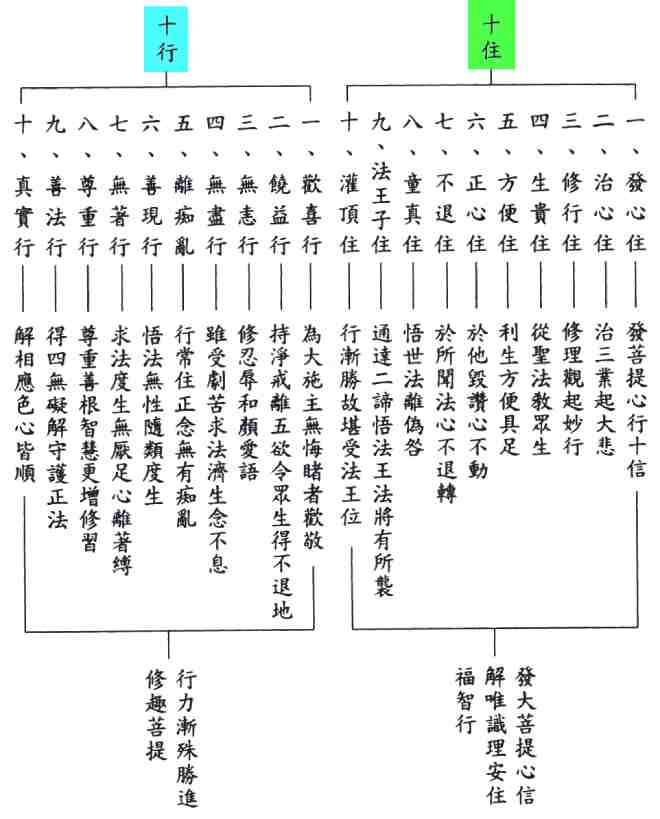 十住
一、發心住
發菩提心行十信
二、治心住
治三業起大悲
三、修行住
修理觀起妙行
四、生貴住
從聖法教眾生
五、方便住
利生方便具足
六、正心住
於他毀讚心不動
七、不退住
於所聞法心不退轉
八、童真住
悟世法離偽咎
九、法王子住
通達二諦悟法王法將有所襲
十、灌頂住
行漸勝故堪受法王位
發大菩提心信
解唯識理安住
福智行
十行
一、歡喜行
為大施主無悔睹者歡敬
二、饒益行
持淨戒離五欲令眾生得不退地
三、無恚行
修忍辱和顏愛語
四、無盡行
雖受劇苦求法濟生念不息
五、離痴亂
行常住正念無有痴亂
六、善現行
悟法無性隨類度生
七、無著行
求法度生無厭足心離著縛
八、尊重行
尊重善根智慧更增修習
九、善法行
得四無礙解守護正法
十、真實行
解相應色心皆順
行力漸殊勝進
修趣菩提